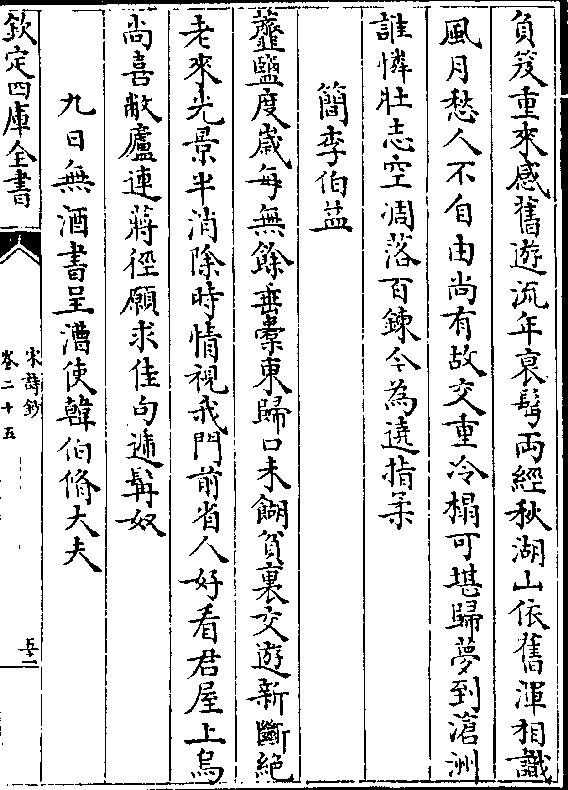 負笈重來感舊遊流年衰髩兩經秋湖山依舊渾相識
風月愁人不自由尚有故交重冷榻可堪歸夢到滄洲
誰憐壯志空凋落百鍊今為遶指柔
簡李伯益
虀鹽度歲每無餘垂橐東歸口未餬貧裏交遊新斷絶
老來光景半消除時情視我門前雀人好看君屋上烏
尚喜敝廬連蔣徑願求佳句遞髯奴
九日無酒書呈漕使韓伯脩大夫
欽定四庫全書
宋詩鈔
卷二十五